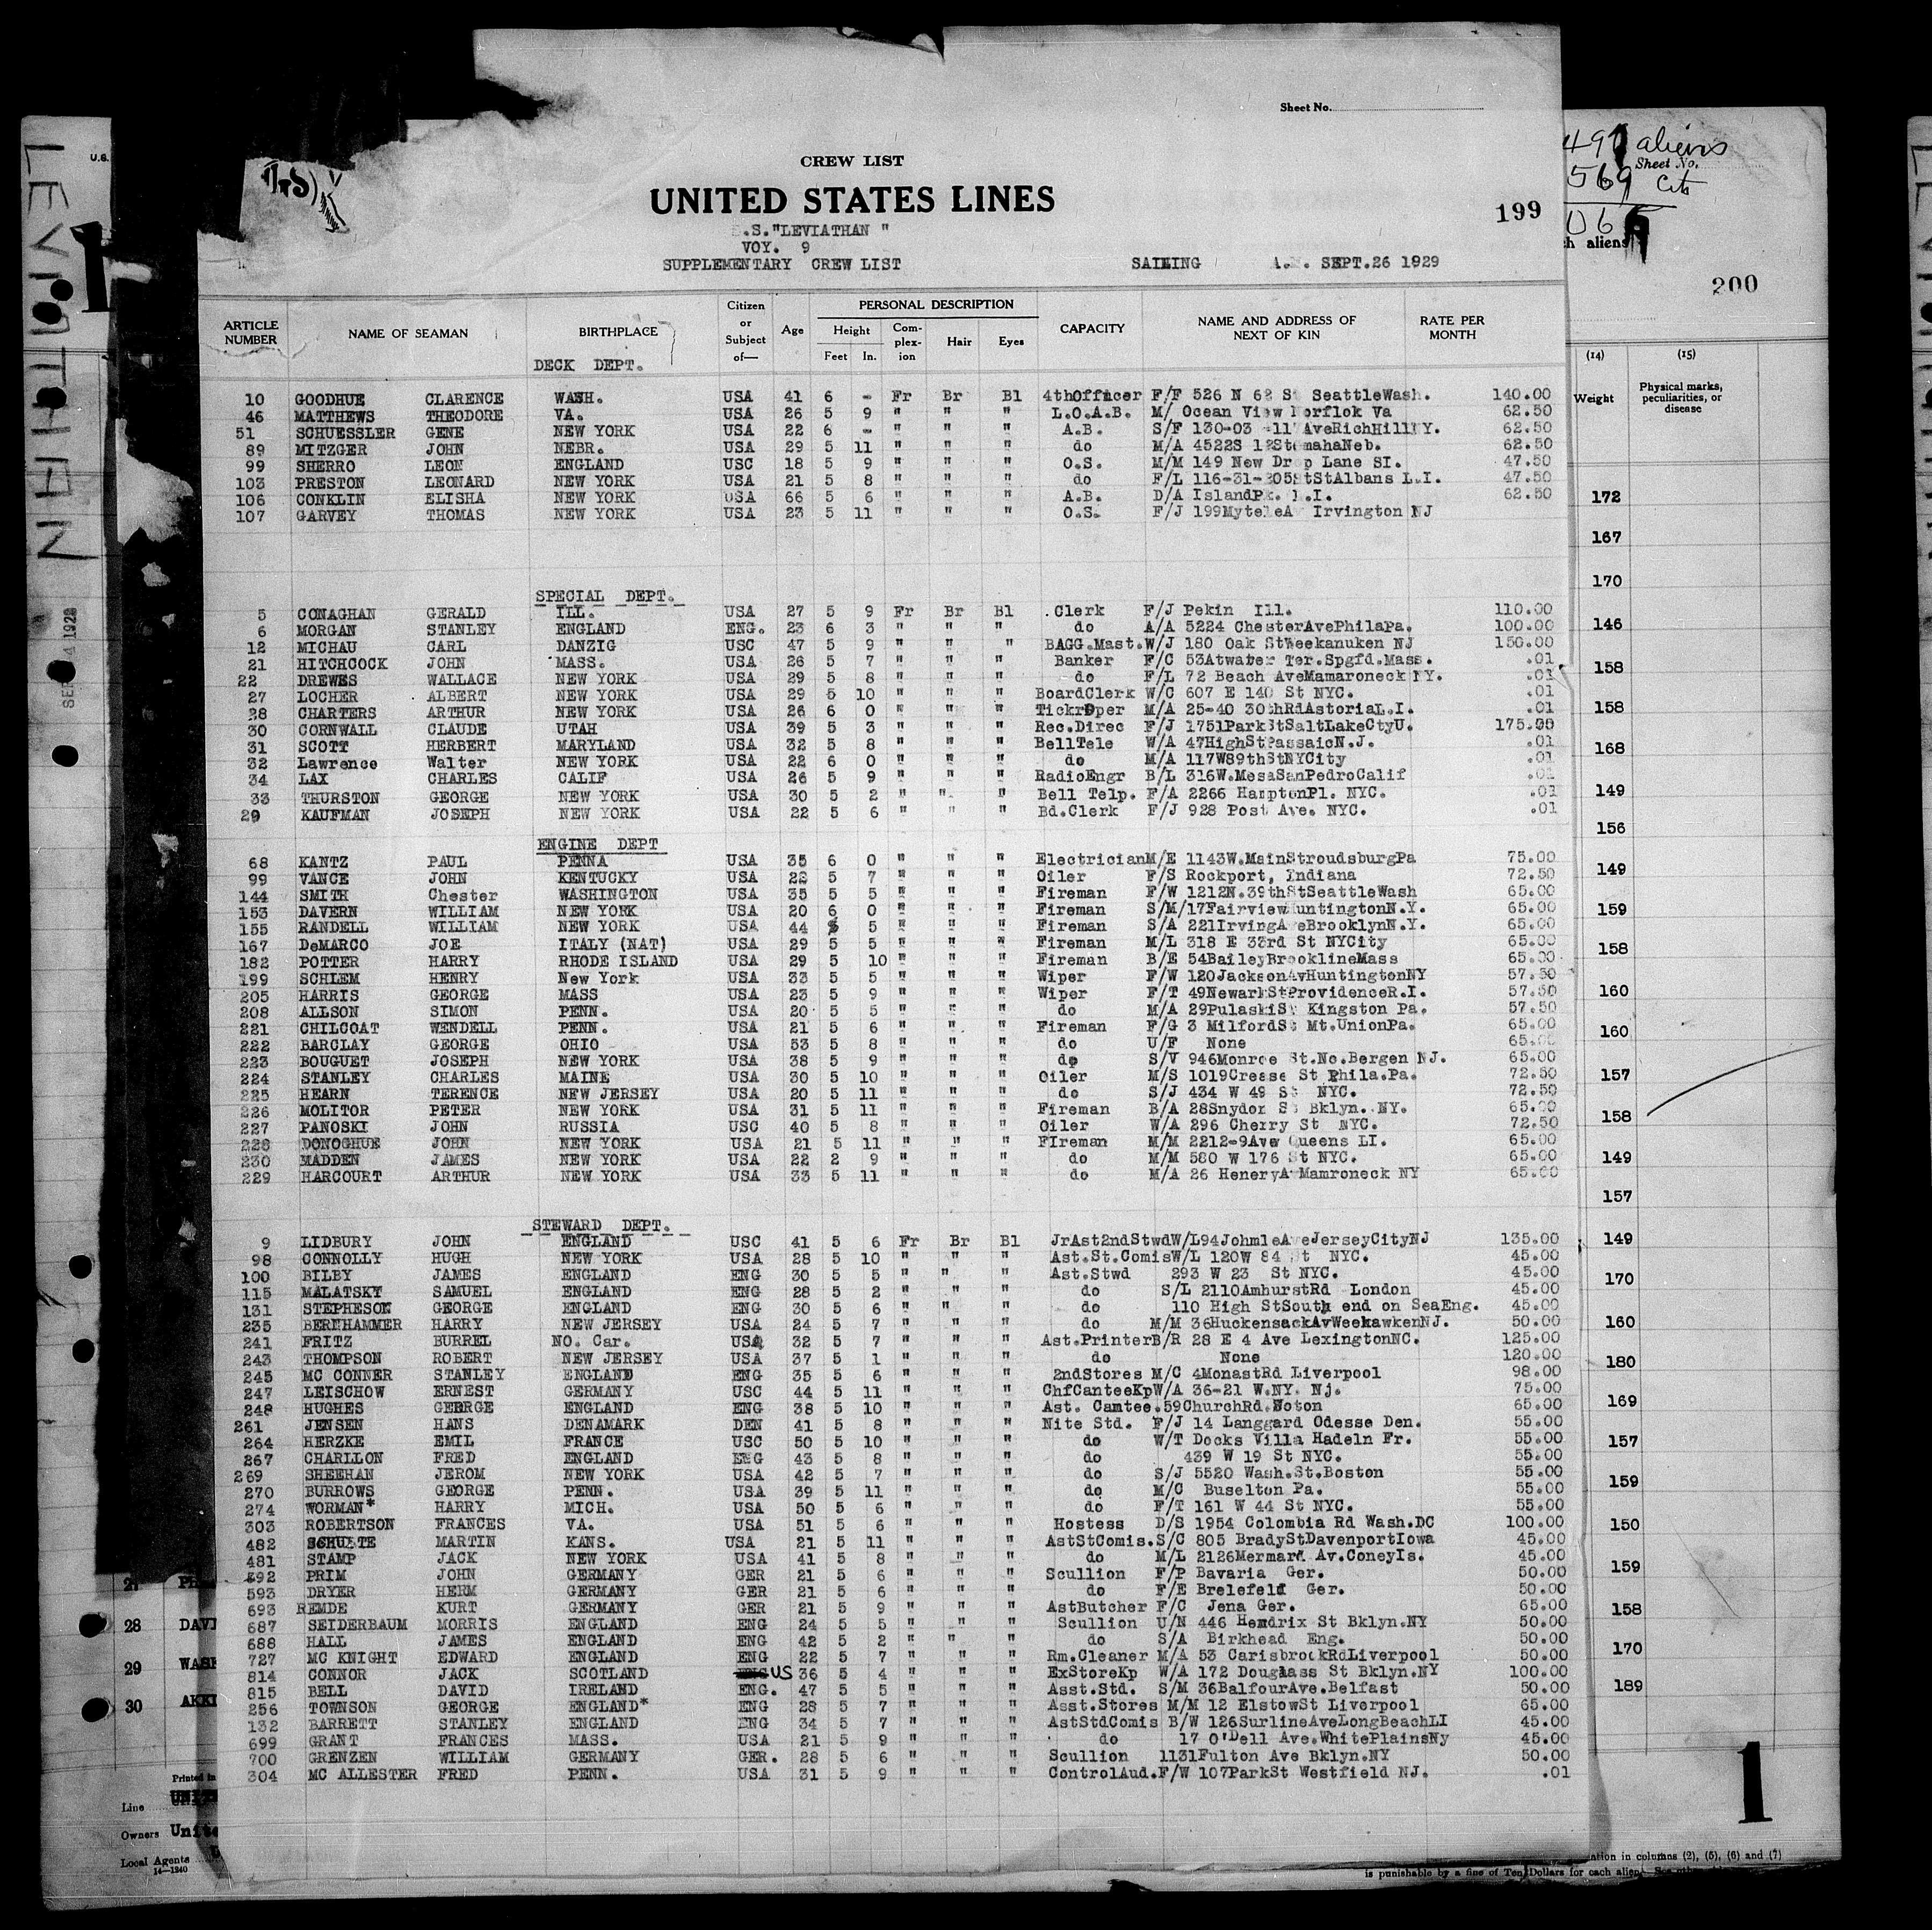 Sheet No.
CREW LIST
UNITED STATES LINES
199
.S."LEVIATHAN "
VOY. 9
SUPPLEMENTARY CREW LIST SAILING SEPT.26 1929
ARTICLE NUMBER NAME OF SEAMAN BIRTHPLACE Citizen or Subject of— Age PERSONAL DESCRIPTION Height Feet In. Complexion Hair Eyes CAPACITY NAME AND ADDRESS OF NEXT OF KIN RATE PER MONTH
DECK DEPT.
10 GOODHUE CLARENCE WASH. USA 41 6 - Fr Br Bl 4thOfficer F/F 526 N 62 S SeattleWash. 140.00
46 MATTHEWS THEODORE VA. USA 26 5 9 " " " L.O.A.B. M/ Ocean View Norflok Va 62.50
51 SCHUESSLER GENE NEW YORK USA 22 6 - " " " A.B. S/F 130-03 -11 AveRichHill Y. 62.50
89 MITZGER JOHN NEBR. USA 29 5 11 " " " do M/A 4522S 12St mahaNeb. 62.50
99 SHERRO LEON ENGLAND USC 18 5 9 " " " O.S. M/M 149 New Drop Lane SI. 47.50
103 PRESTON LEONARD NEW YORK USA 21 5 8 " " " do F/L 116-31-205StStAlbans L.I. 47.50
106 CONKLIN ELISHA NEW YORK USA 66 5 6 " " " A.B. D/A IslandPk. L.I. 62.50
107 GARVEY THOMAS NEW YORK USA 23 5 11 " " " O.S. F/J 199MyteleA Irvington NJ
SPECIAL DEPT.
5 CONAGHAN GERALD ILL. USA 27 5 9 Fr Br Bl .Clerk F/J Pekin Ill. 110.00
6 MORGAN STANLEY ENGLAND ENG. 23 6 3 " " " do A/A 5224 ChesterAvePhilaPa. 100.00
12 MICHAU CARL DANZIG USC 47 5 9 " " " BAGG.Mast. W/J 180 Oak StWeekanuken NJ 150.00
21 HITCHCOCK JOHN MASS. USA 26 5 7 " " " Banker F/C 53Atwater Ter.Spgfd.Mass. .01
22 DREWES WALLACE NEW YORK USA 29 5 8 " " " do F/L 72 Beach AveMamaroneck NY. .01
27 LOCHER ALBERT NEW YORK USA 29 5 10 " " " BoardClerk W/C 607 E 140 St NYC. .01
28 CHARTERS ARTHUR NEW YORK USA 26 6 0 " " " TickrOper M/A 25-40 30thRdAstoriaL.I. .01
30 CORNWALL CLAUDE UTAH USA 39 5 3 " " " Rec.Direc F/J 1751ParkStSaltLakeCtyU. 175.00
31 SCOTT HERBERT MARYLAND USA 32 5 8 " " " BellTele W/A 47HighStPassaicN.J. .01
32 Lawrence Walter NEW YORK USA 22 6 0 " " " do M/A 117W89thStNYCity .01
34 LAX CHARLES CALIF USA 26 5 9 " " " RadioEngr B/L 316W.MesaSanPedroCalif .01
33 THURSTON GEORGE NEW YORK USA 30 5 2 " " " Bell Telp. F/A 2266 HamptonPl. NYC. .01
29 KAUFMAN JOSEPH NEW YORK USA 22 5 6 " " " Bd.Clerk F/J 928 Post Ave. NYC. .01
ENGINE DEPT
68 KANTZ PAUL PENNA USA 35 6 0 " " " Electrician M/E 1143W.MainStroudsburgPa 75.00
99 VANCE JOHN KENTUCKY USA 22 5 7 " " " Oiler F/S Rockport, Indiana 72.50
144 SMITH Chester WASHINGTON USA 35 5 5 " " " Fireman F/W 1212N.39thStSeattleWash 65.00
153 DAVERN WILLIAM NEW YORK USA 20 6 0 " " " Fireman S/M/17Fairview untingtonN.Y. 65.00
155 RANDELL WILLIAM NEW YORK USA 44 5 5 " " " Fireman S/A 221IrvingAveBrooklynN.Y. 65.00
167 DeMARCO JOE ITALY (NAT) USA 29 5 5 " " " Fireman M/L 318 E 33rd St NYCity 65.00
182 POTTER HARRY RHODE ISLAND USA 29 5 10 " " " Fireman B/E 54BaileyBrooklineMass 65.00
199 SCHLEM HENRY New York USA 33 5 5 " " " Wiper F/W 120JacksonAvHuntingtonNY 57.50
205 HARRIS GEORGE MASS USA 23 5 9 " " " Wiper F/T 49NewarkStProvidenceR.I. 57.50
208 ALLSON SIMON PENN. USA 20 5 5 " " " do M/A 29PulaskiSt Kingston Pa. 57.50
221 CHILCOAT WENDELL PENN. USA 21 5 6 " " " Fireman F/G 3 MilfordSt Mt.UnionPa. 65.00
222 BARCLAY GEORGE OHIO USA 53 5 8 " " " do U/F None 65.00
223 BOUGUET JOSEPH NEW YORK USA 38 5 9 " " " do S/V 946Monroe St.No.Bergen NJ. 65.00
224 STANLEY CHARLES MAINE USA 30 5 10 " " " Oiler M/S 1019Creese St Phila.Pa. 72.50
225 HEARN TERENCE NEW JERSEY USA 20 5 11 " " " do S/J 434 W 49 St NYC. 72.50
226 MOLITOR PETER NEW YORK USA 31 5 11 " " " Fireman B/A 28Snyder St Bklyn. NY. 65.00
227 PANOSKI JOHN RUSSIA USC 40 5 8 " " " Oiler W/A 296 Cherry St NYC. 72.50
228 DONOGHUE JOHN NEW YORK USA 21 5 11 " " " FIreman M/M 2212-9Ave Queens LI. 65.00
230 MADDEN JAMES NEW YORK USA 22 2 9 " " " do M/M 580 W 176 St NYC. 65.00
229 HARCOURT ARTHUR NEW YORK USA 33 5 11 " " " do M/A 26 HeneryA Mamroneck NY 65.00
STEWARD DEPT.
9 LIDBURY JOHN ENGLAND USC 41 5 6 Fr Br Bl JrAst2ndStwd W/L94JohmleAveJerseyCityNJ 135.00
98 CONNOLLY HUGH NEW YORK USA 28 5 10 " " " Ast.St.Comis W/L 120W 84 St NYC. 45.00
100 BILBY JAMES ENGLAND ENG 30 5 5 " " " Ast.Stwd 293 W 23 St NYC. 45.00
115 MALATSKY SAMUEL ENGLAND ENG 28 5 2 " " " do S/L 2110AmhurstRd London 45.00
131 STEPHESON GEORGE ENGLAND ENG 30 5 6 " " " do 110 High StSouth end on SeaEng. 45.00
235 BERNHAMMER HARRY NEW JERSEY USA 24 5 7 " " " do M/M 36HuckensackAvWeehawkenNJ. 50.00
241 FRITZ BURREL NO. Car. USA 32 5 7 " " " Ast.Printer B/R 28 E 4 Ave LexingtonNC. 125.00
243 THOMPSON ROBERT NEW JERSEY USA 37 5 1 " " " do None 120.00
245 MC CONNER STANLEY ENGLAND ENG 35 5 6 " " " 2ndStores M/C 4MonastRd Liverpool 98.00
247 LEISCHOW ERNEST GERMANY USC 44 5 11 " " " ChfCanteeKp W/A 36-21 W.NY. Nj. 75.00
248 HUGHES GEBRGE ENGLAND ENG 38 5 10 " " " Ast. Camtee. 59ChurchRd.Noton 65.00
261 JENSEN HANS DENAMARK DEN 41 5 8 " " " Nite Std. F/J 14 Langgard Odesse Den. 55.00
264 HERZKE EMIL FRANCE USC 50 5 10 " " " do W/T Docks Villa Hadeln Fr. 55.00
267 CHARLLON FRED ENGLAND ENG 43 5 8 " " " do 439 W 19 St NYC. 55.00
269 SHEEHAN JEROM NEW YORK USA 42 5 7 " " " do S/J 5520 Wash.St.Boston 55.00
270 BURROWS GEORGE PENN. USA 39 5 11 " " " do M/C Buselton Pa. 55.00
274 WORMAN* HARRY MICH. USA 50 5 6 " " " do F/T 161 W 44 St NYC. 55.00
303 ROBERTSON FRANCES VA. USA 51 5 6 " " " Hostess D/S 1954 Colombia Rd Wash.DC 100.00
482 SCHULTE MARTIN KANS. USA 21 5 11 " " " AstStComis. S/C 805 BradyStDavenportIowa 45.00
481 STAMP JACK NEW YORK USA 41 5 8 " " " do M/L 2126Mermard Av.ConeyIs. 45.00
592 PRIM JOHN GERMANY GER 21 5 6 " " " Scullion F/P Bavaria Ger. 50.00
593 DRYER HERM GERMANY GER 21 5 6 " " " do F/E Brelefeld Ger. 50.00
693 REMDE KURT GERMANY GER 21 5 9 " " " AstButcher F/C Jena Ger. 65.00
687 SEIDERBAUM MORRIS ENGLAND ENG 24 5 5 " " " Scullion U/N 446 Hendrix St Bklyn.NY 50.00
688 HALL JAMES ENGLAND ENG 42 5 2 " " " do S/A Birkhead Eng. 50.00
727 MC KNIGHT EDWARD ENGLAND ENG 22 5 7 " " " Rm.Cleaner M/A 53 CarisbrockRdLiverpool 50.00
814 CONNOR JACK SCOTLAND ENG US 36 5 4 " " " ExStoreKp W/A 172 Douglass St Bklyn.NY 100.00
815 BELL DAVID IRELAND ENG. 47 5 5 " " " Asst.Std. S/M 36BalfourAve.Belfast 50.00
256 TOWNSON GEORGE ENGLAND* ENG 28 5 7 " " " Asst.Stores M/M 12 ElstowSt Liverpool 65.00
132 BARRETT STANLEY ENGLAND ENG 34 5 7 " " " AstStdComis B/W 126SurlineAveLongBeachLI 45.00
699 GRANT FRANCES MASS. USA 21 5 9 " " " do 17 O'Dell Ave.WhitePlainsNy 45.00
700 GRENZEN WILLIAM GERMANY GER. 28 5 6 " " " Scullion 1131Fulton Ave Bklyn.NY 50.00
304 MC ALLESTER FRED PENN. USA 31 5 9 " " " ControlAud. F/W 107ParkSt Westfield NJ. .01
U.S.
LEVIATHAN
1
SEP 4 1929
28 DAVI
29 WASH
30 AKKE
Printed in
Line
Owners Unite
Local Agents
14—1240
491 aliens
Sheet No.
569 Cits
06
h aliens
200
(14) (15)
Weight Physical marks, peculiarities, or disease
172
167
170
146
158
158
168
149
156
149
159
158
160
160
157
158
149
157
149
170
160
180
169
157
159
150
159
158
170
189
1
ation in columns (2), (5), (6) and (7)
is punishable by a fine of Ten Dollars for each alien.